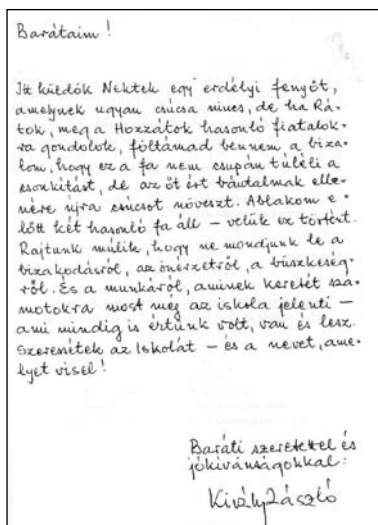 Barátaim!
Itt küldök Nektek egy erdélyi fenyőt,
amelynek ugyan csúcsa nincs, de ha Rá-
tok, meg a Hozzátok hasonló fiatalok-
ra gondolok, föltámad bennem a biza-
lom, hogy ez a fa nem csupán túléli a
csonkítást, de az őt ért bántalmak elle-
nére újra csúcsot növeszt. Ablakom e-
lőtt két hasonló fa áll – velük ez történt.
Rajtunk múlik, hogy ne mondjunk le a
bizakodásról, az önérzetről, a büszkeség-
ről. És a munkáról, aminek keretét szá-
motokra most még az iskola jelenti –
ami mindig is értünk volt, van és lesz.
Szeressétek az Iskolát – és a nevet, ame-
lyet visel!
Baráti szeretettel és
jókívánságokkal:
Király László